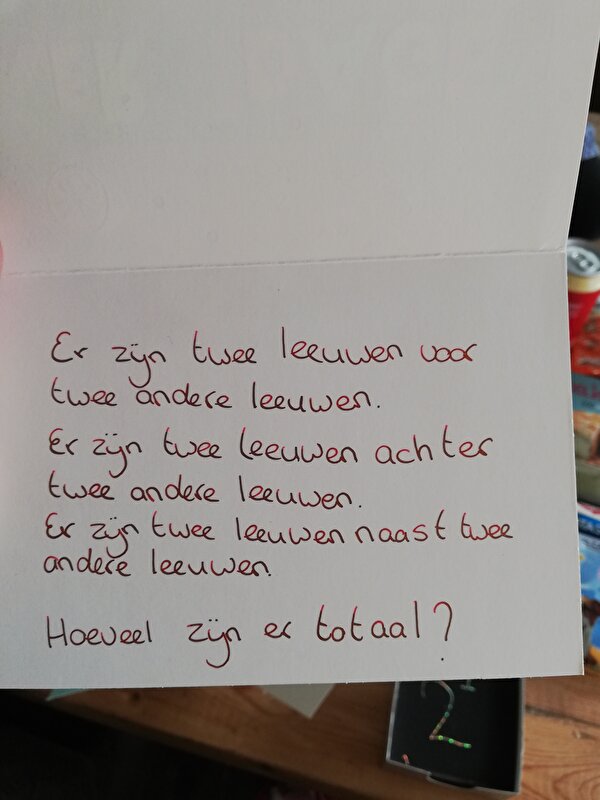 Er zijn twee leeuwen voor
twee andere leeuwen.
Er zijn twee leeuwen achter
twee andere leeuwen.
Er zijn twee leeuwen naast twee
andere leeuwen.
Hoeveel zijn er totaal?
2